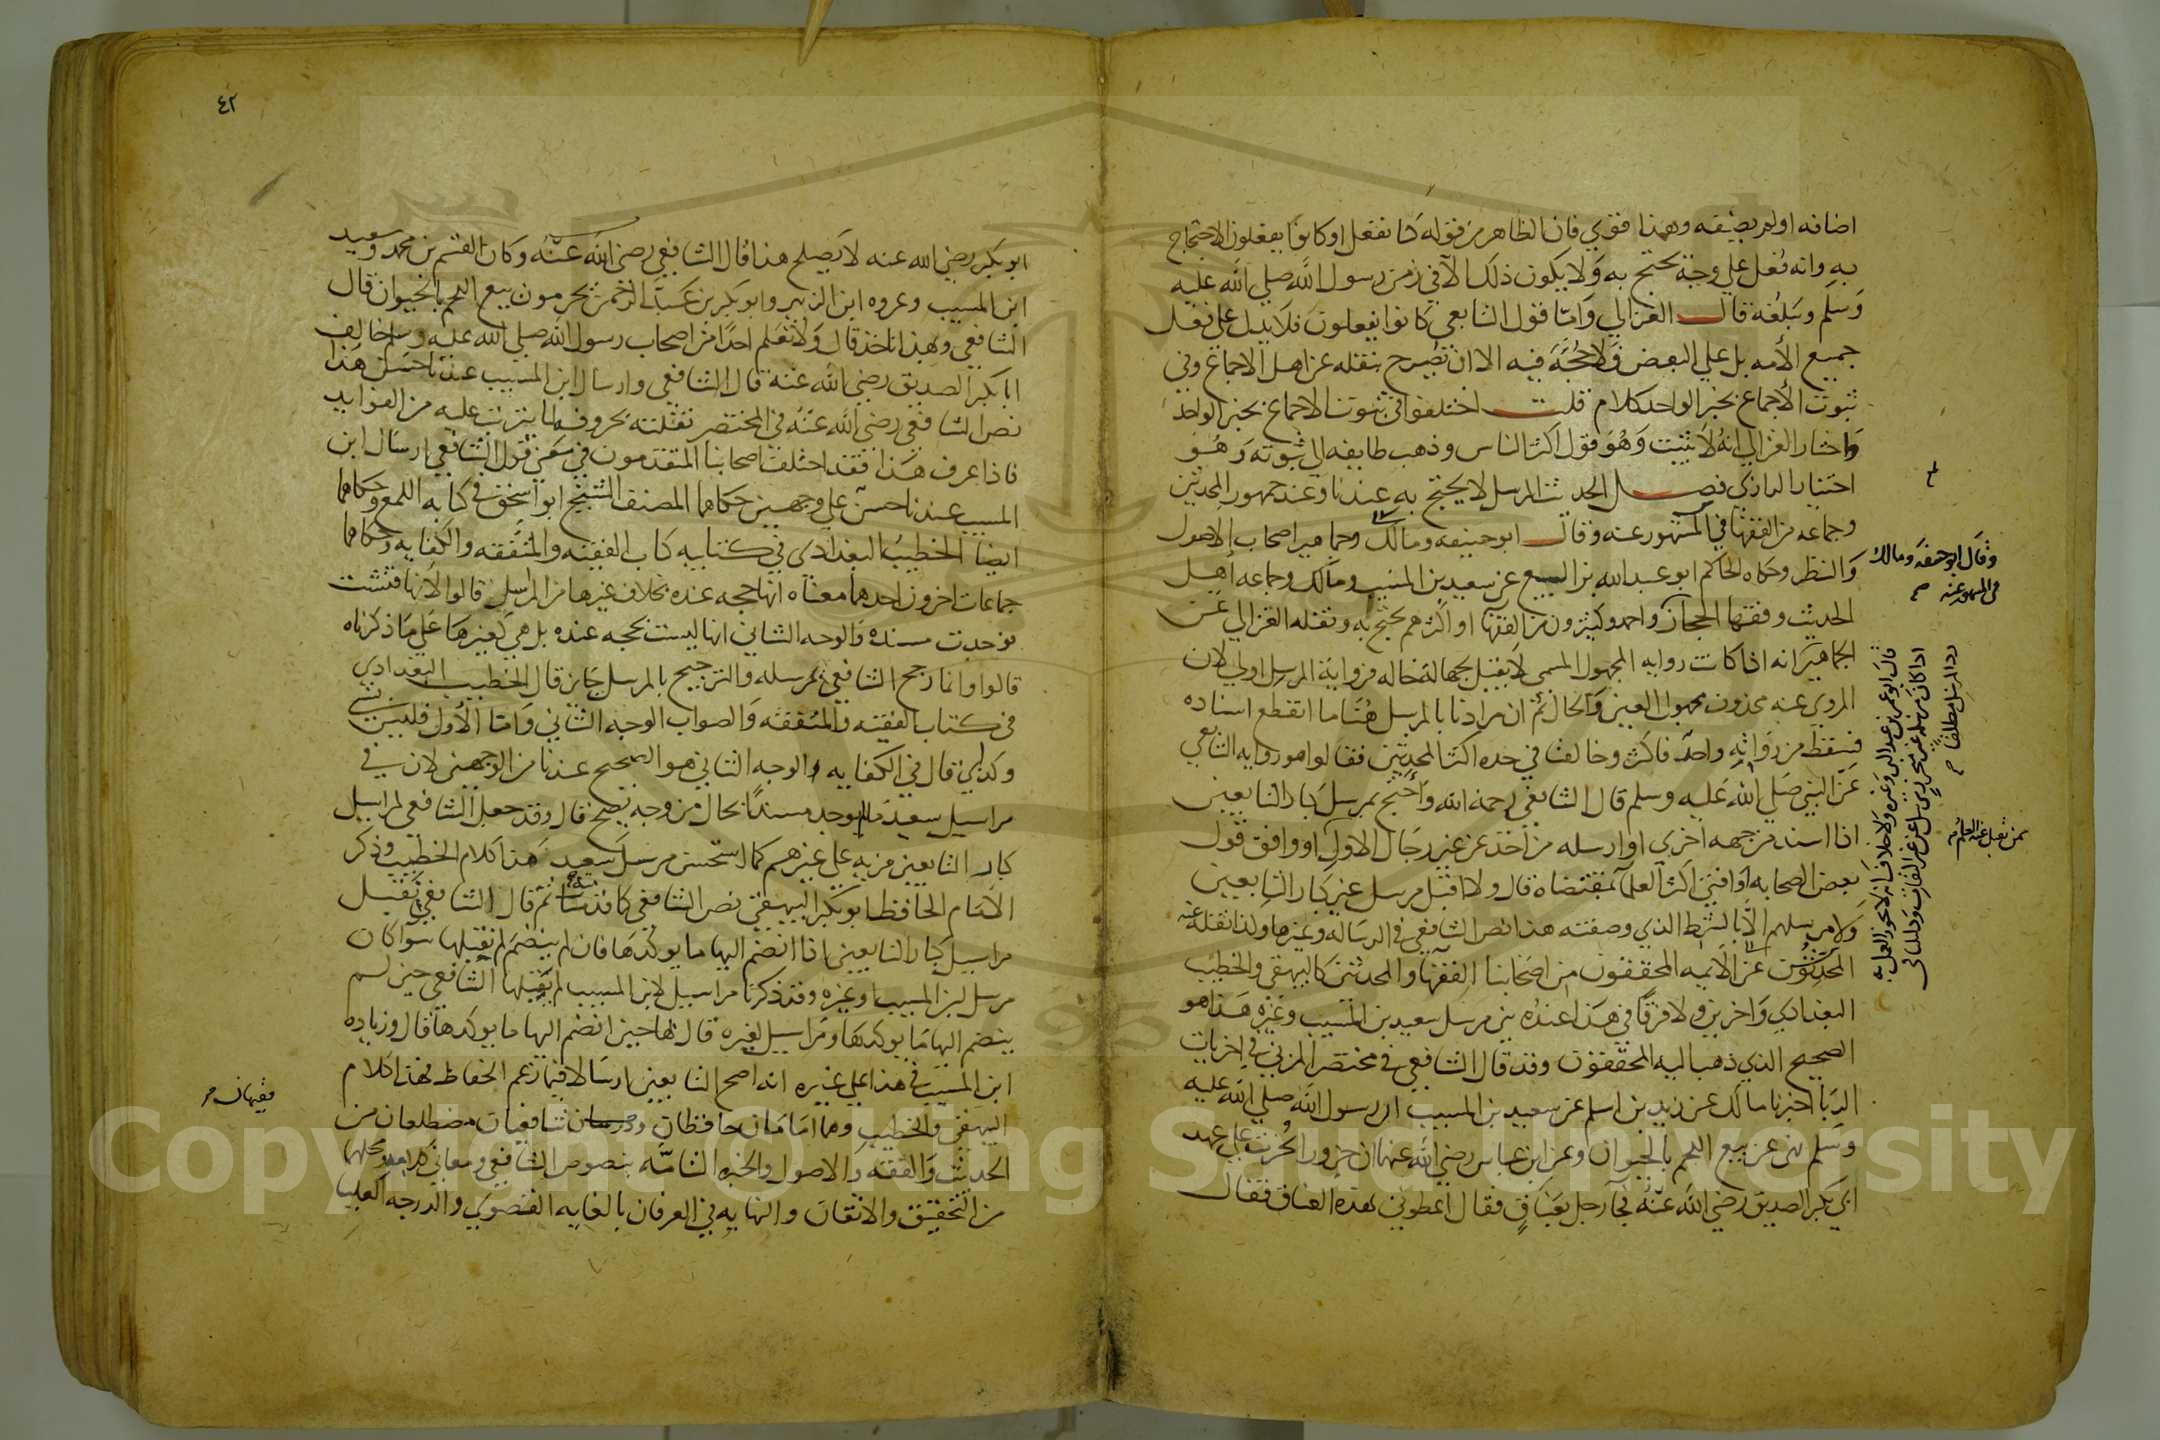 اضافه او لم يضيفه وهذا قوي فان الظاهر من قوله كنا نفعل او كانوا يفعلون الاحتجاج
به وانه فعل على وجه يحتج به ولا يكون ذلك الا في زمن رسول الله صلى الله عليه
وسلم وتبلغه قال الغزالي واما قول التابعي كانوا يفعلون فلا يدل على فعل
جميع الأمه بل على البعض فلا حجة فيه الا ان يصرح بنقله عن اهل الاجماع وفي
ثبوت الأجماع بخبر الواحد كلام قلت اختلفوا في ثبوت الاجماع بخبر الواحد
واختار الغزالي انه لا يثبت وهو قول اكثر الناس وذهب طايفه الى ثبوته وهو
اختيار الرازي فصل الحديث المرسل لا يحتج به عندنا وعند جمهور المحدثين
وجماعه من الفقها في المشهور عنه وقال ابو حنيفه ومالك وجماهير اصحاب الاصول
والنظر وحكاه الحاكم ابو عبد الله بن البيع عن سعيد بن المسيب ومالك وجماعه اهل
الحديث وفقها الحجاز واحمد وكثيرون من الفقها او اكثرهم يحتج به ونقله الغزالي عن
الجماهير انه اذا كانت روايه المجهول المسمى لا يقبل لجهالة حاله فرواية المرسل اولى لان
المروي عنه محذوف مجهول العين والحال ثم ان مرادنا بالمرسل هنا ما انقطع اسناده
فسقط من رواته واحد فاكثر وخالف في حده اكثر المحدثين فقالوا هو روايه التابعي
عن النبي صلى الله عليه وسلم قال الشافعي رحمة الله واحتج بمرسل كبار التابعين
اذا اسند من جهه اخرى او ارسله من اخذ عن غير رجال الاول او وافق قول
بعض الصحابه او افتى اكثر العلما بمقتضاه قال ولا اقبل مرسل غير كبار التابعين
ولا مرسلهم الا بالشرط الذي وصفته هذا نص الشافعي في الرساله وغيرها ولذا نقله عنه
المحدثون عن الأيمه المحققون من اصحابنا الفقها والمحدثين كالبيهقي والخطيب
البغدادي واخرين ولا فرق في هذا عنده بين مرسل سعيد بن المسيب وغيره هذا هو
الصحيح الذي ذهب اليه المحققون وقد قال الشافعي في مختصر المزني في اخر باب
الربا اخبرنا مالك عن زيد بن اسلم عن سعيد بن المسيب ان رسول الله صلى الله عليه
وسلم نهى عن بيع اللحم بالحيوان وعن ابن عباس رضي الله عنهما ان جزورا نحرت على عهد
ابي بكر الصديق رضي الله عنه فجآ رجل بعناق فقال اعطوني بهذه العناق فقال
وقال ابو حنيفه ومالك
في المشهور عنه
رد المرسل مطلقا
قال ابو عمر بن عبد البر وغيره ولا خلاف انه لا يجوز العمل به
اذا كان مرسله غير متحرز يرسل عن غير الثقات
٤٢
ابو بكر رضي الله عنه لا يصلح هذا قال الشافعي رضي الله عنه وكان القسم بن محمد وسعيد
ابن المسيب وعروه ابن الزبير وابو بكر بن عبد الرحمن يحرمون بيع اللحم بالحيوان قال
الشافعي وبهذا ناخذ قال ولا نعلم احدا من اصحاب رسول الله صلى الله عليه وسلم خالف
ابا بكر الصديق رضي الله عنه قال الشافعي وارسال ابن المسيب عندنا حسن هذا
نص الشافعي رضي الله عنه في المختصر نقلته بحروفه لما يترتب عليه من الفوايد
فاذا عرف هذا فقد اختلف اصحابنا المتقدمون في معنى قول الشافعي ارسال ابن
المسيب عندنا حسن على وجهين حكاهما المصنف الشيخ ابو اسحق في كتابه اللمع وحكاهما
ايضا الخطيب البغدادي في كتابيه كتاب الفقيه والمتفقه والكفايه وحكاهما
جماعات اخرون احدهما معناه انها حجه عنده بخلاف غيرها من المراسيل قالوا لانها فتشت
فوجدت مسنده والوجه الثاني انها ليست بحجه عنده بل هي كغيرها على ما ذكرناه
قالوا وانما رجح الشافعي بمرسله والترجيح بالمرسل جايز قال الخطيب البغدادي
في كتاب الفقيه والمتفقه والصواب الوجه الثاني واما الأول فليس بشي
وكذلك قال في الكفايه والوجه الثاني هو الصحيح عندنا من الوجهين لان في
مراسيل سعيد ما لم يوجد مسندا بحال من وجه يصح قال وقد جعل الشافعي لمراسيل
كبار التابعين مزيه على غيرهم كما استحسن مرسل سعيد هذا كلام الخطيب وذكر
الامام الحافظ ابو بكر البيهقي نص الشافعي كما قدمته ثم قال الشافعي يقبل
مراسيل كبار التابعين اذا انضم اليها ما يوكدها فان لم ينضم لم يقبلها سوآ كان
مرسل ابن المسيب او غيره وقد ذكرنا مراسيل لابن المسيب لم يقبلها الشافعي حين لم
ينضم اليها ما يوكدها ومراسيل لغيره قال بها حين انضم اليها ما يوكدها قال وزياده
ابن المسيب في هذا على غيره انه اصح التابعين ارسالا فيما زعم الحفاظ فهذا كلام
البيهقي والخطيب وهما امامان حافظان شافعيان مضطلعان من
الحديث والفقه والاصول والخبره التامه بنصوص الشافعي ومعاني كلامه ومحلهما
من التحقيق والاتقان والنهايه في العرفان بالغايه القصوى والدرجه العليا
فقيهان
Copyright © King Saud University